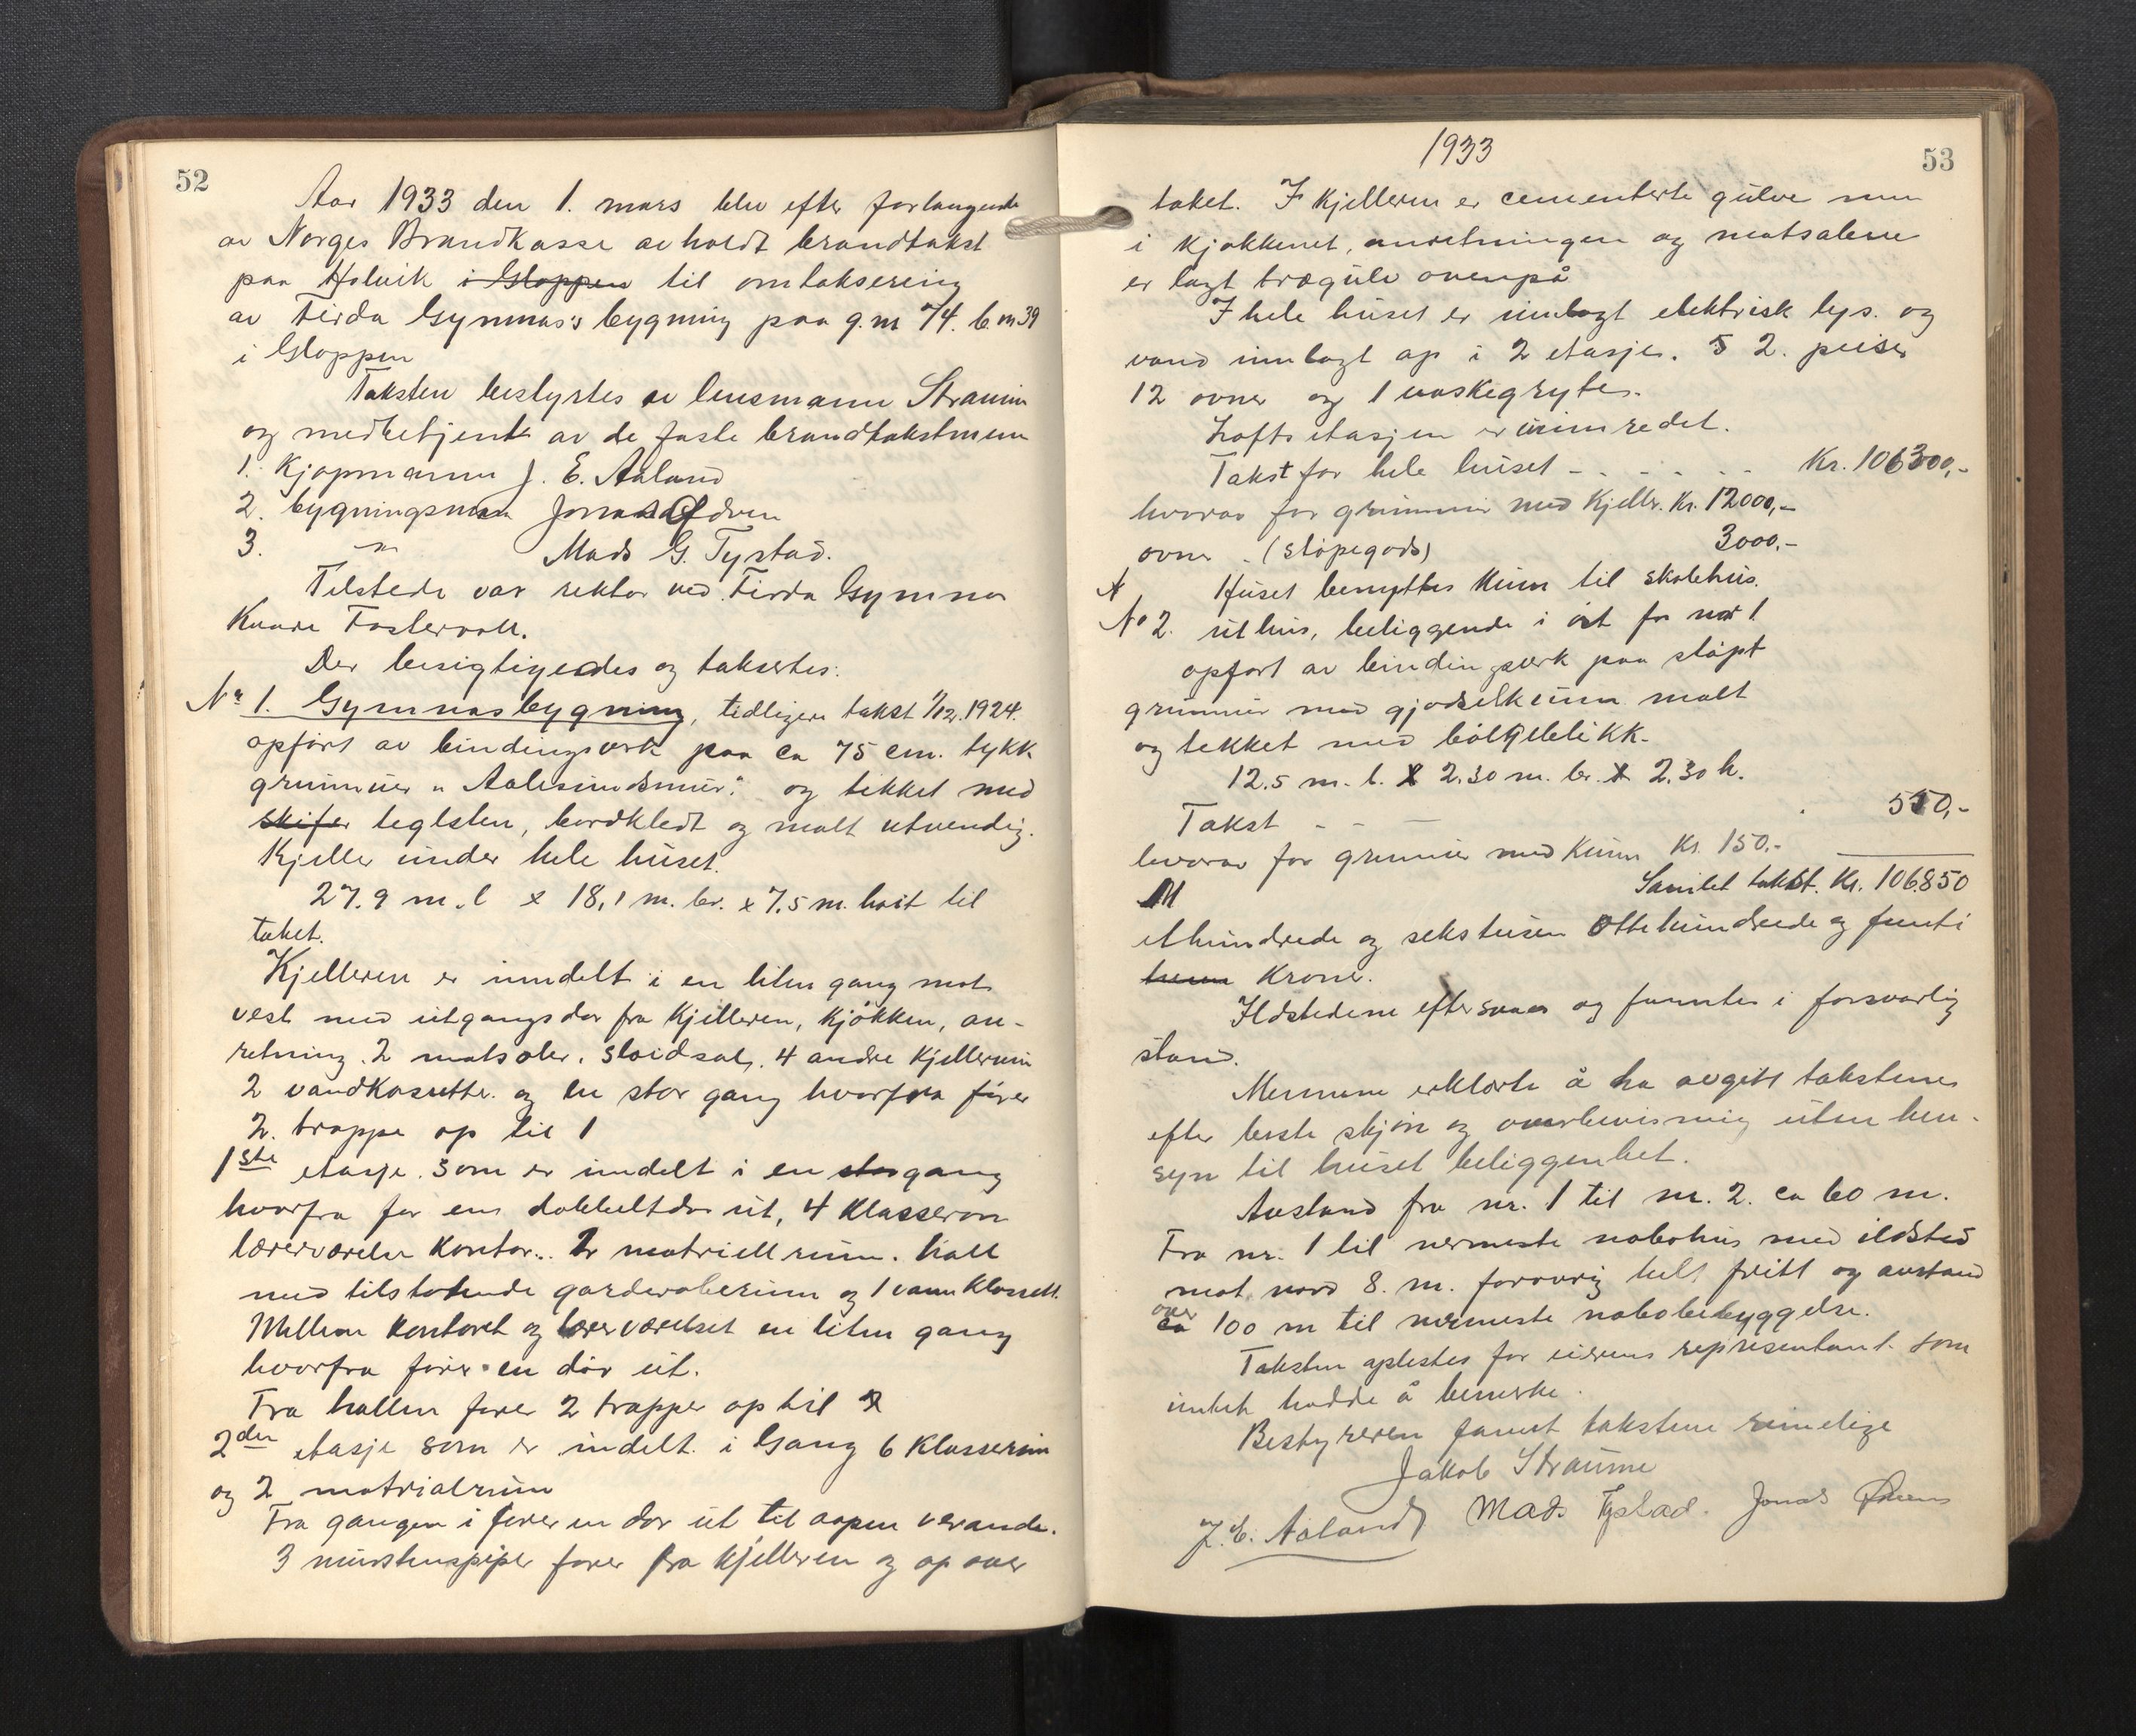 52
Aar 1933 den 1. mars blev efter forlangende
av Norges Brandkasse avholdt brandtakst
paa Holvik i Gloppen til omtaksering
av Firda Gymnas's bygning paa g.nr 74. b.nr 39
i Gloppen
Taksten bestyrtes av lensmann Straume
og medbetjent av de faste brandtakstmenn
1. Kjøpmann J. E. Aaland
2. bygningsmann Jonas Ødven
3. " Mads G. Tystad.
Tilstede var rektor ved Firda Gymnas
Kaare Fostervoll.
Der besigtigedes og taksertes:
Nr 1. Gymnasbygning, tidligere takst 1/12.1924.
opført av bindingsverk paa ca 75 cm. tykk
grunmur "Aalesundsmur" og tekket med
skifer teglsten, bordkledt og malt utvendig.
Kjeller under hele huset.
27.9 m. l x 18,1 m. br. x 7.5 m. høit til
taket.
Kjelleren er inndelt i en liten gang mot
vest med utgangsdør fra kjelleren, kjøkken, an-
retning. 2 matsaler, sløidsal, 4 andre kjellerum
2 vandklosetter. og en stor gang hvorfra fører
2. trapper op til 1
1ste etasje. som er inndelt i en stor gang
hvorfra før en dobbeltdør ut, 4 klasserom
lærerværelse kontor.. 2 matriellrum. hall
med tilstøtende garderoberum og 1 vannklosett.
Mellem kontoret og lærerværelset en liten gang
hvorfra fører en dør ut.
Fra hallen fører 2 trapper op til 2
2den etasje som er indelt i Gang 6 Klasserum
og 2 matrialrum
Fra gangen i fører en dør ut til aapen veranda.
3 murstenspiper fører fra kjelleren og op over
1933
53
taket. I kjelleren er cementerte gulve men
i kjøkkenet, anretningen og matsalene
er lagt trægulv ovenpå
I hele huset er innlagt elektrisk lys. og
vand innlagt op i 2 etasje. 2. peiser
12 ovner og 1 vaskegryte.
Loftsetasjen er uinnredet.
Takst for hele huset - - - - - - Kr. 106300,-
hvorav for grunmur med Kjeller. Kr. 12000,-
ovner (støpegods) 3000,-
Huset benyttes kun til skolehus.
No 2. uthus, beliggende i øst for nr 1
opført av bindingsverk paa støpt
grunmur med gjødselkum malt
og tekket med bølgeblikk.
12.5 m. l. x 2.30 m. br. x 2.30 h.
Takst - - - 550,-
hvorav for grunmur med kum Kr. 150.-
Samlet takst. Kr. 106850
ethundrede og sekstusen ottehundrede og femti
kroner.
Ildstedene eftersaaes og funntes i forsvarlig
stand.
Mennene erklærte å ha avgitt takstene
efter beste skjøn og overbevisning uten hen-
syn til huset beliggenhet.
Avstand fra nr. 1 til nr. 2. ca 60 m.
Fra nr. 1 til nermeste nabohus med ildsted
mot nord 8. m. forøvrig helt fritt og avstand
ca over 100 m til nermeste nabobebyggelse.
Taksten oplestes for eierens representant som
intet hadde å bemerke.
Bestyreren fannt takstene rimelige
Jakob Straume
J. E. Aaland Mads Tystad. Jonas Ødven